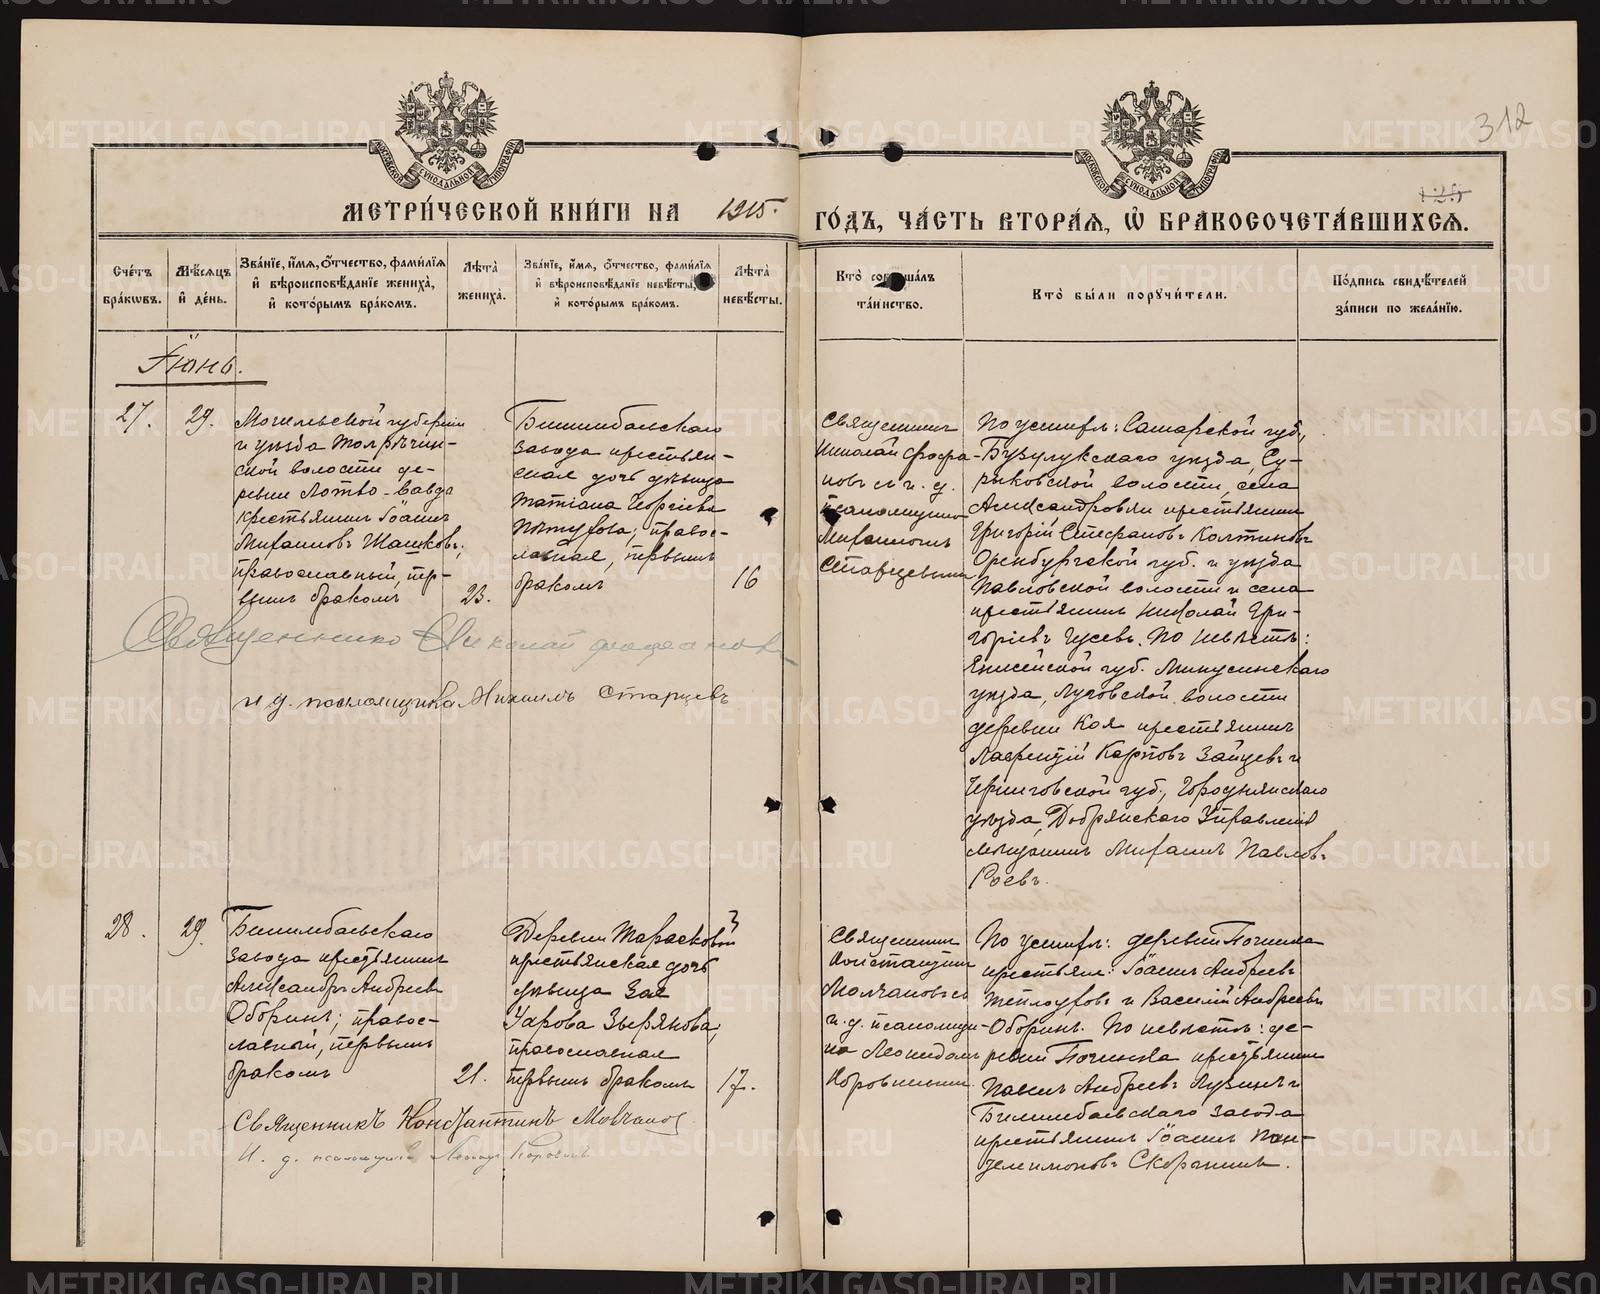 312
МЕТРИ́ЧЕСКОЙ КНИ́ГИ НА 1915. ГО́ДЪ, ЧА́СТЬ ВТОРА́Ѧ, Ѡ҆ БРАКОСОЧЕТА́ВШИХСѦ.
Сче́тъ бра́кѡвъ.
Мѣ́сѧцъ и҆ де́нь.
Зва́нїе, и҆́мѧ, ѻ҆́тчество, фамил́їѧ и҆ вѣроисповѣ́данїе жениха̀, и҆ кото́рымъ бра́комъ.
Лѣ́та жениха̀.
Зва́нїе, и҆́мѧ, ѻ҆́тчество, фами́лїѧ и҆ вѣроисповѣ́данїе невѣ́сты, и҆ кото́рымъ бра́комъ.
Лѣ́та невѣ́сты.
Кто̀ соверша́лъ та́инство.
Кто̀ бы́ли порꙋчи́тели.
По́дпись свидѣ́телей за́писи по жела́нїю.
Іюнь.
27.
29.
Могилевской губерніи
и уѣзда Толпѣчин-
ской волости де-
ревни
крестьянинъ Іоаннъ
Михаиловъ Машковъ;
православный, пер-
вымъ бракомъ
23.
Билимбаевскаго
завода крестьян-
ская дочь дѣвица
Татіана Георгіева
правос-
лавная, первымъ
бракомъ
16
Священникъ
Николай Фофа-
новъ съ и. д.
псаломщика
Михаиломъ
Старцевымъ
По женихѣ: Самарской губ.,
Бузулукскаго уѣзда,
волости, села
Александровки крестьянинъ
Григорій Стефановъ Колтиновъ
Оренбургской губ. и уѣзда
Павловской волости и села
крестьянинъ Николай Гри-
горіевъ Гусевъ. По невѣстѣ:
Енисейской губ. Минусинскаго
уѣзда, Луговской волости
деревни Коя крестьянинъ
Лаврентій Карповъ Зайцевъ и
Черниговской губ., Городнянскаго
уѣзда, Добрянскаго Управленія
мѣщанинъ Михаилъ Павловъ
Гоевъ.
Священникъ Николай Фофановъ
и. д. псаломщика Михаилъ Старцевъ
28.
29.
Билимбаевскаго
завода крестьянинъ
Александръ Андреевъ
Оборинъ; правос-
лавный, первымъ
бракомъ
21.
Деревни Тарасковой
крестьянская дочь
дѣвица Зоя
Уарова Звѣрянова;
православная
первымъ бракомъ
17.
Священникъ
Константинъ
Молчановъ съ
и. д. псаломщи-
ка Леонидомъ
Коровинымъ
По женихѣ: деревни Починка
крестьяне: Іоаннъ Андреевъ
Теплоуховъ и Василій Андреевъ
Оборинъ. По невѣстѣ: де-
ревни Починка крестьянинъ
Павелъ Андреевъ Лузинъ и
Билимбаевскаго завода
крестьянинъ Іоаннъ Пан-
телимоновъ Скорынинъ.
Священникъ Константинъ Молчановъ
И. д. псаломщика Леонидъ Коровинъ
METRIKI.GASO-URAL.RU